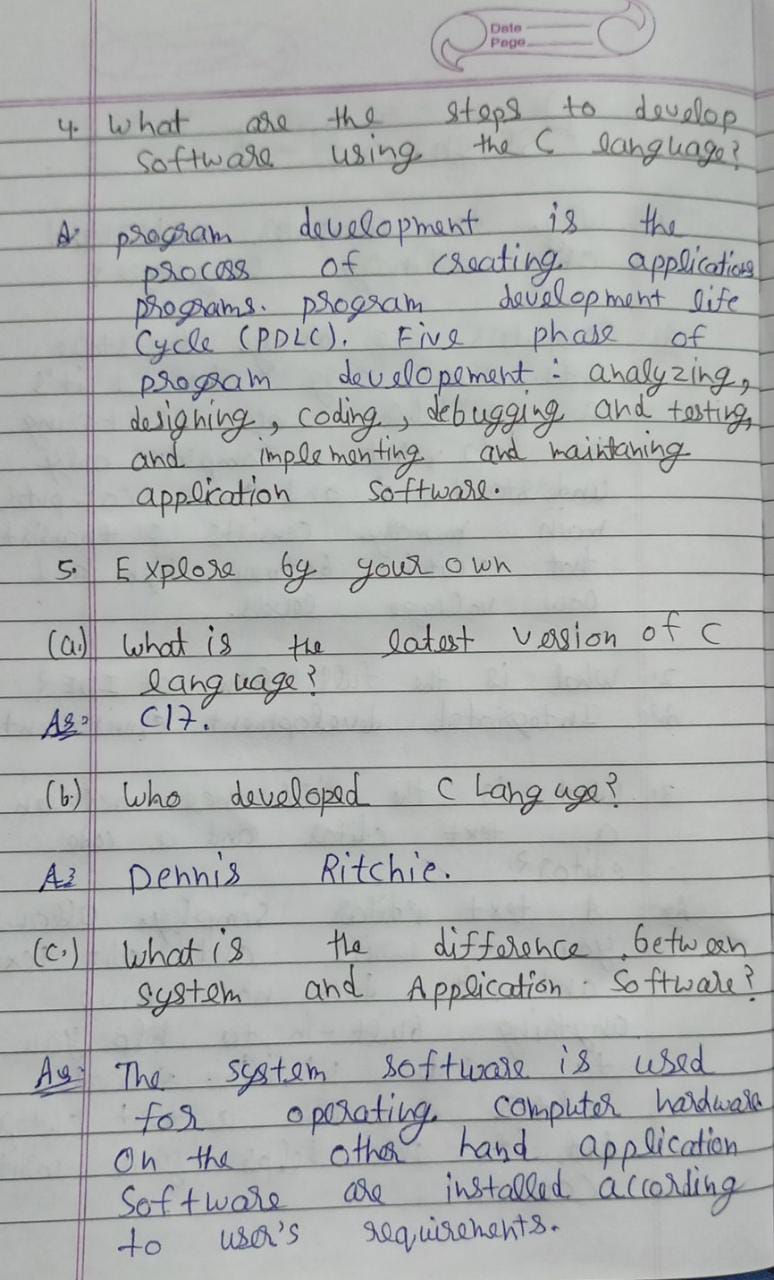 Date
Page
4. What are the steps to develop
software using the C language?
A. program development is the
process of creating application
programs. program development life
Cycle (PDLC). Five phase of
program developement : analyzing,
designing, coding, debugging and testing,
and implementing and maintaning
application software.
5. Explore by your own
(a.) What is the latest version of C
language?
As: C17.
(b.) Who developed C Language?
A: Dennis Ritchie.
(c.) What is the difference between
system and Application Software?
As: The system software is used
for operating computer hardware
On the other hand application
Software are installed according
to user's requirements.